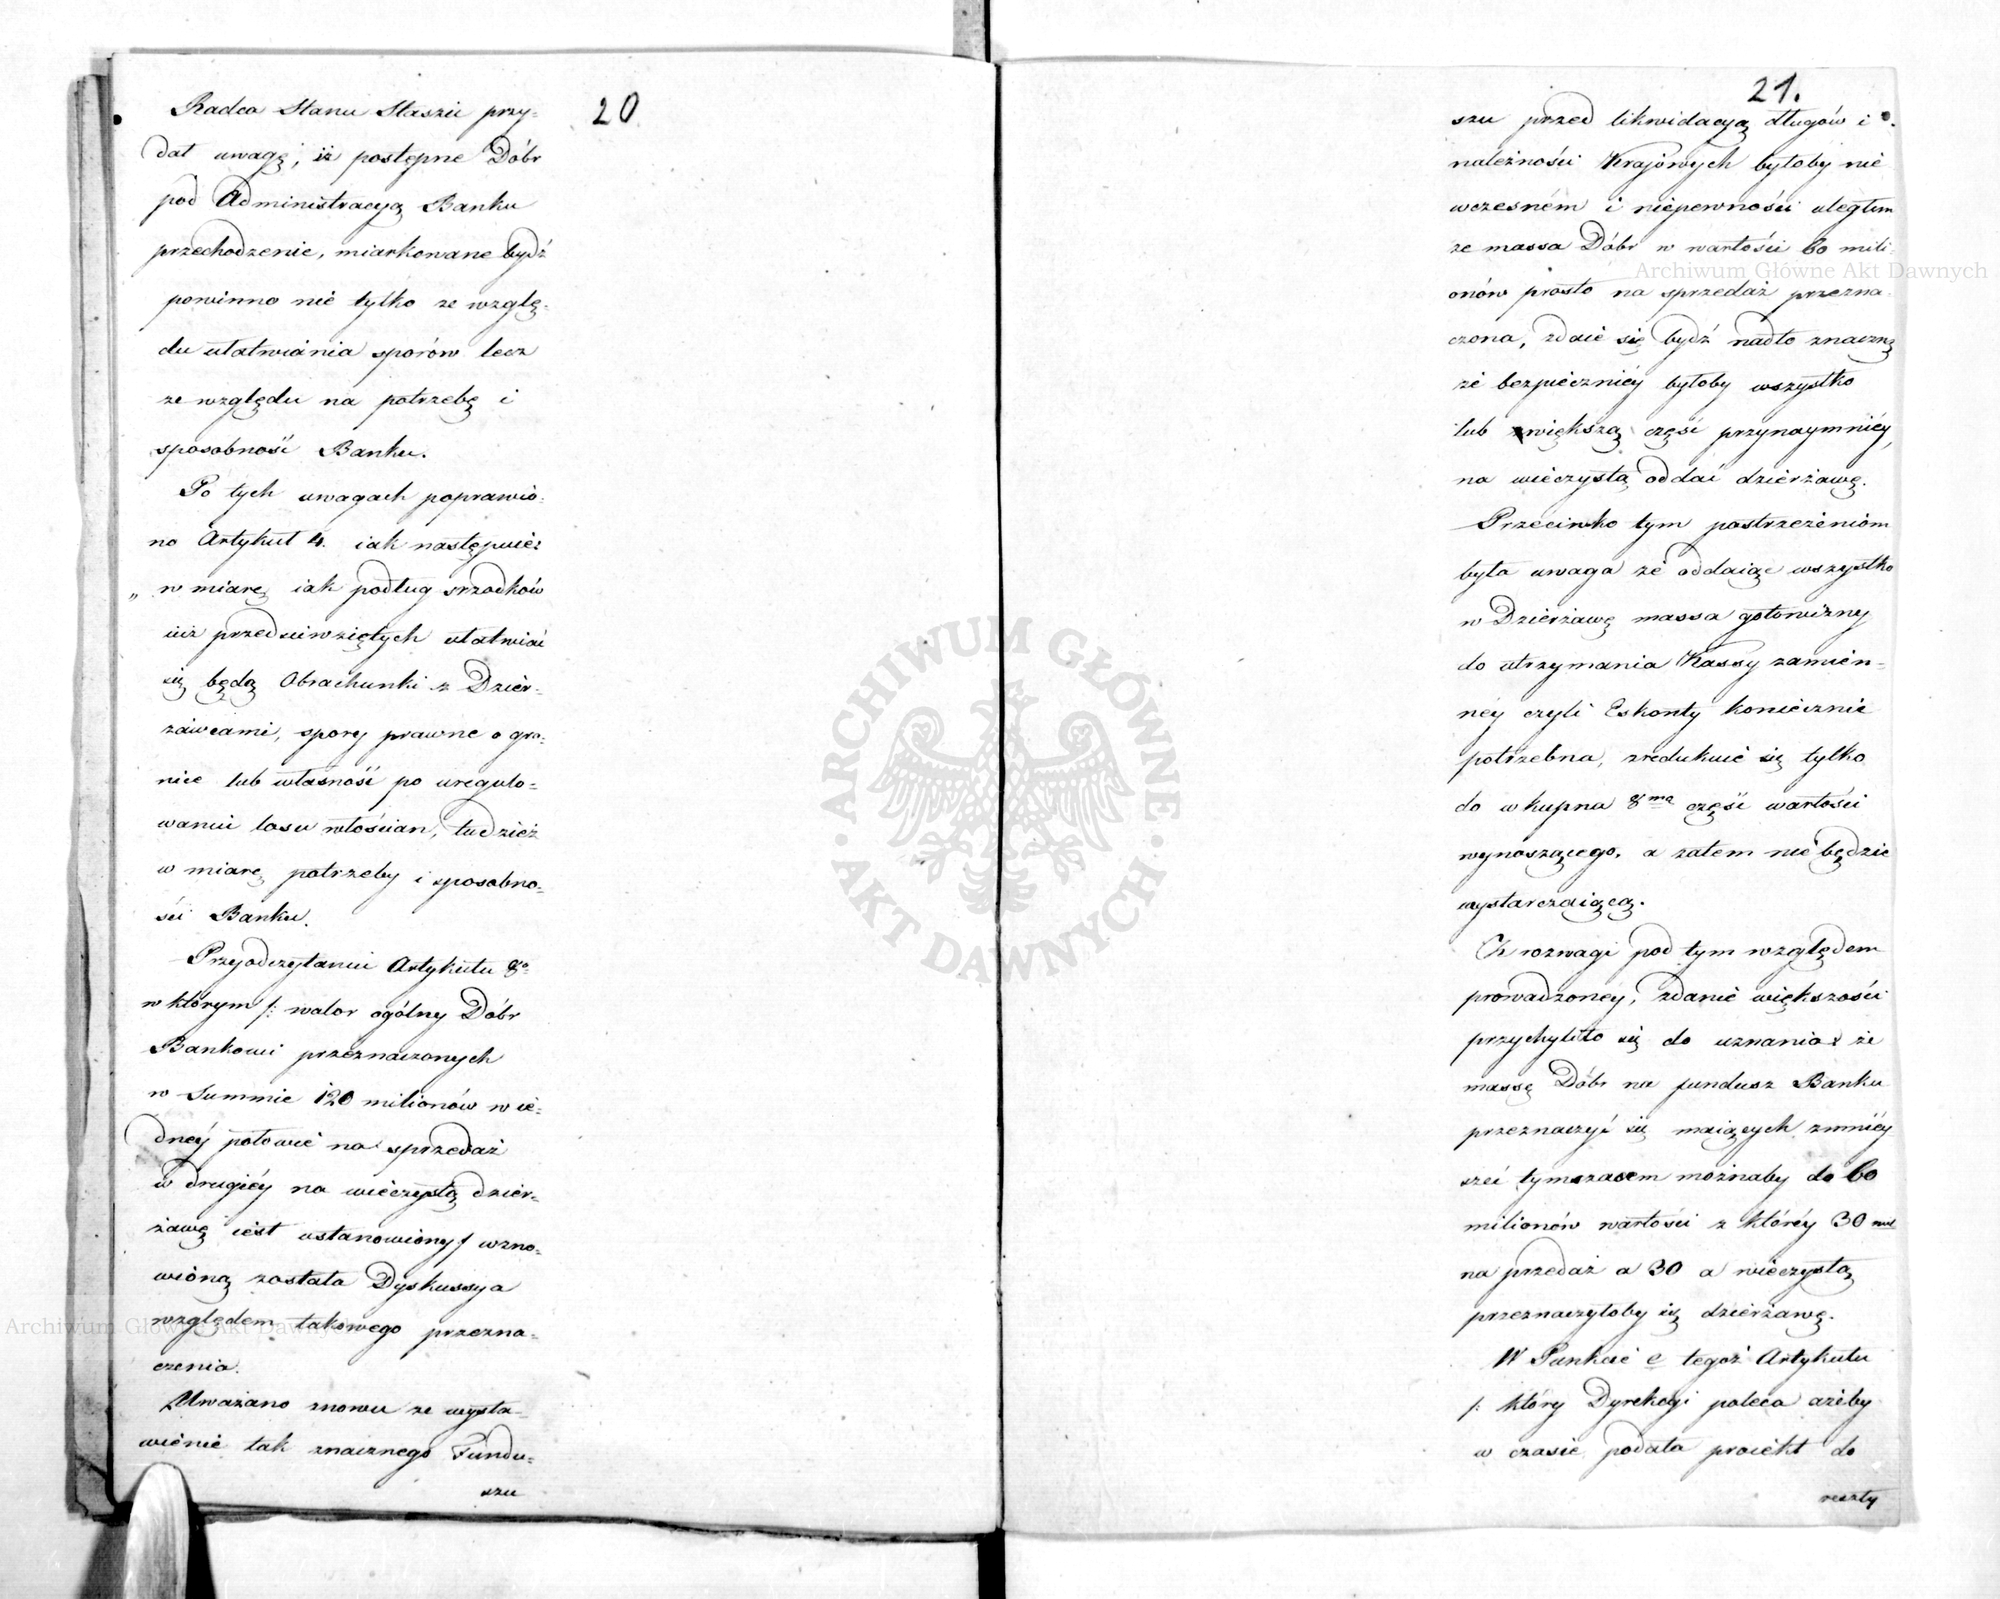 20
Radca Stanu Staszic przy-
dał uwagę, iż postępne Dóbr
pod Administracyą Banku
przechodzenie, miarkowane bydź
powinno nie tylko ze wzglę-
du ułatwiania sporów lecz
ze względu na potrzebę i
sposobność Banku.
Po tych uwagach poprawio-
no Artykuł 4. iak następuie:
„ w miarę iak podług srzodków
iuż przedsiewziętych ułatwiać
się będą Obrachunki z Dzier-
żawcami, spory prawne o gra-
nice lub własność po uregulo-
waniu losu włościan, tudzież
w miarę potrzeby i sposobno-
ści Banku.
Przy odczytaniu Artykułu 8o
w którym /: walor ogólny Dóbr
Bankowi przeznaczonych
w Summie 120 milionów w ie-
dnéy połowie na sprzedaż
w drugiéy na wieczystą dzier-
żawę iest ustanowiony / wzno-
wioną została Dyskussya
względem takowego przezna-
czenia.
Uważano znowu że wysta-
wienie tak znacznego Fundu-
szu
21.
szu przed likwidacyą długów i
należności Krajowych byłoby nie
wczesném i niepewności uległem
że massa Dóbr w wartości 60 mili-
onów prosto na sprzedaż przezna-
czona, zdaie się bydź nadto znaczną
że bezpieczniéy byłoby wszystko
lub większą część przynaymniéy,
na wieczystą oddać dzierżawę.
Przeciwko tym postrzeżeniom
była uwaga że oddaiąc wszystko
w Dzierżawę massa gotowizny
do utrzymania Kassy zamien-
néy czyli Eskonty koniecznie
potrzebna, zredukuie się tylko
do wkupna 8mą część wartości
wynoszącego, a zatem nie będzie
wystarczaiącą.
Z rozwagi pod tym względem
prowadzonéy, zdanie większości
przychyliło się do uznania że
massę Dóbr na fundusz Banku
przeznaczyć się maiących zmniéy
szeć tymczasem możnaby do 60
milionów wartości z któréy 30 mil
na przedaż a 30 a wieczystą
przeznaczyłoby się dzierżawę.
W Punkcie e tegoż Artykułu
/: który Dyrekcyi poleca ażeby
w czasie podała proiekt do
reszty
Archiwum Główne Akt Dawnych
Archiwum Główne Akt Dawnych
ARCHIWUM GŁÓWNE
AKT DAWNYCH